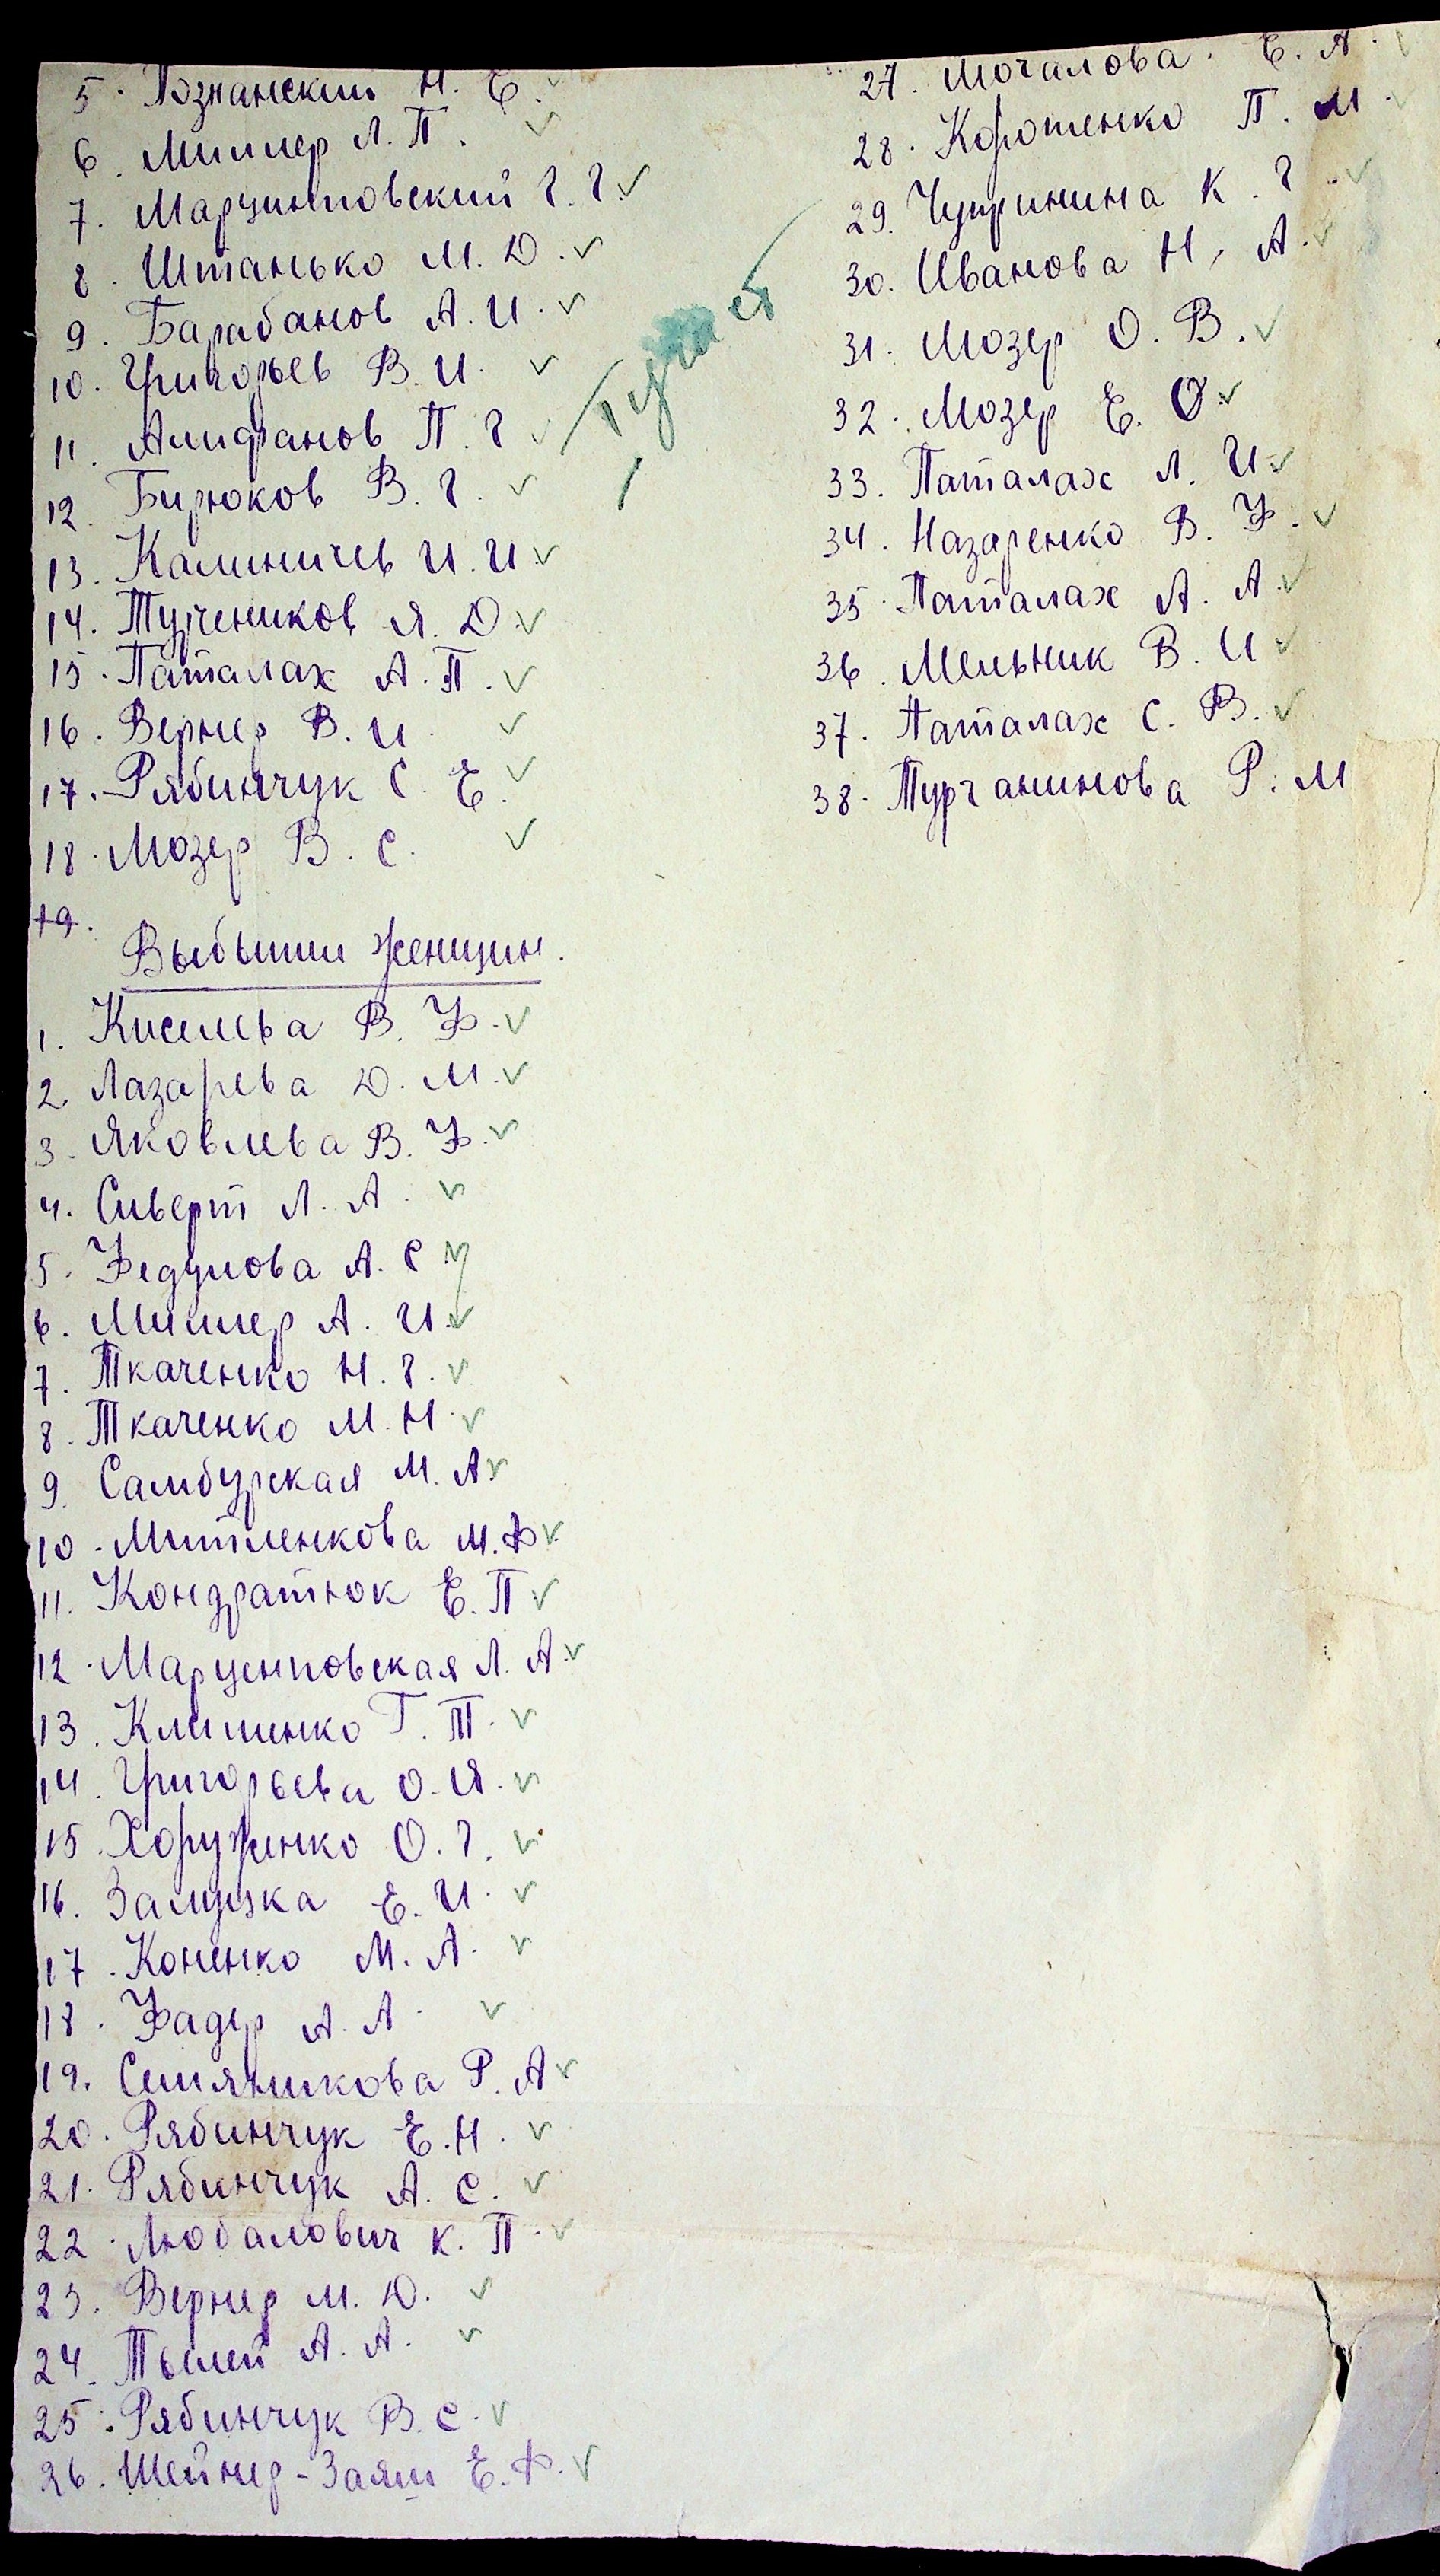 5. Познанский Н. Е.
6. Миллер Л. П.
7. Марцинповский Г. Г.
8. Штанько М. Д.
9. Барабанов А. И.
10. Григорьев В. И.
11. Алифанов П. Г
12. Бирюков В. Г.
13. Калиничев И. И.
14. Тузчеников Я. Д.
15. Паталах А. П.
16. Вернер В. И
17. Рябинчук С. Е.
18. Мозер В. С.
19.
Выбыти женщин.
1. Киселева В. Ф.
2. Лазарева Д. М.
3. Яковлева В. Ф.
4. Сиверт Л. А.
5. Федулова А. С
6. Миллер А. И.
7. Ткаченко Н. Г.
8. Ткаченко М. Н.
9. Самбурская М. А.
10. Митленкова М. Ф.
11. Кондратюк Е. П.
12. Марценповская Л. А.
13. Клименко Г. Т.
14. Григорьева О. Я.
15. Хоруженко О. Г.
16. Залузка Е. И.
17. Коненко М. А.
18. Фадер А. А.
19. Семяникова Р. А
20. Рябинчук Е. Н.
21. Рябинчук А. С.
22. Любалович К. П.
23. Вернер М. Д.
24. Тылей А. А.
25. Рябинчук В. С.
26. Шейнер-Заям Е. Ф.
27. Мочалова Е. А.
28. Коротенко П. М.
29. Чупринина К. Г.
30. Иванова Н. А.
31. Мозер О. В.
32. Мозер Е. О.
33. Паталах Л. И.
34. Назаренко В. Ф.
35. Паталах А. А.
36. Мельник В. И.
37. Паталах С. В.
38. Турчанинова Р. М